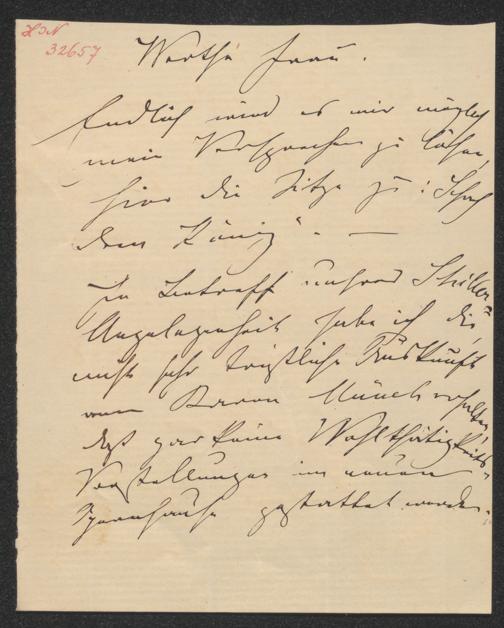 HJN
32657
Werthe Frau.
Endlich wird es mir möglich
mein Versprechen zu lösen,
hier die Sitze zu: "Schach
dem König". —
In Betreff unserer Schiller-
Angelegenheit habe ich die
nicht sehr tröstliche Auskunft
vom Baron Münch erhalten,
daß gar keine Wohlthätigkeits-
Vorstellungen im neuen
Opernhause gestattet werden.